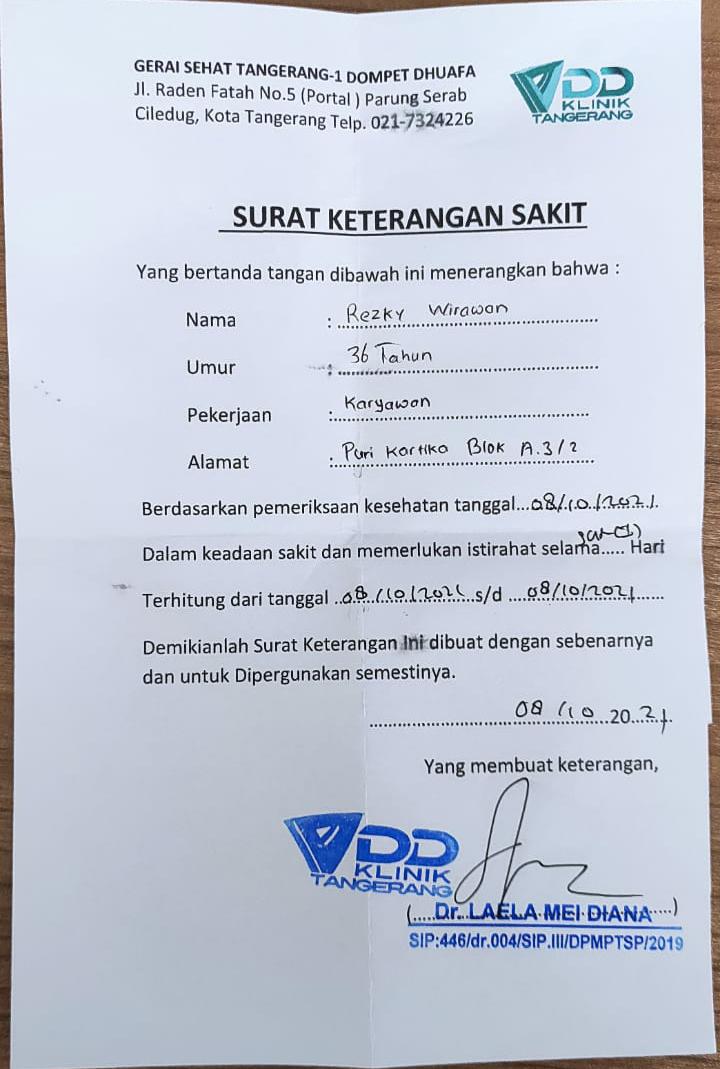 GERAI SEHAT TANGERANG-1 DOMPET DHUAFA
Jl. Raden Fatah No.5 (Portal ) Parung Serab
Ciledug, Kota Tangerang Telp. 021-7324226
DD
KLINIK
TANGERANG
SURAT KETERANGAN SAKIT
Yang bertanda tangan dibawah ini menerangkan bahwa :
Nama : Rezky Wirawan
Umur : 36 Tahun
Pekerjaan : Karyawan
Alamat : Puri Kartika Blok A.3/2
Berdasarkan pemeriksaan kesehatan tanggal...08/10/2021.
Dalam keadaan sakit dan memerlukan istirahat selama..... Hari
Terhitung dari tanggal ..08/10/2021 s/d ....08/10/2021......
Demikianlah Surat Keterangan Ini dibuat dengan sebenarnya
dan untuk Dipergunakan semestinya.
08/10...20..21.
Yang membuat keterangan,
DD
KLINIK
TANGERANG
(.....Dr. LAELA MEI DIANA....)
SIP:446/dr.004/SIP.III/DPMPTSP/2019